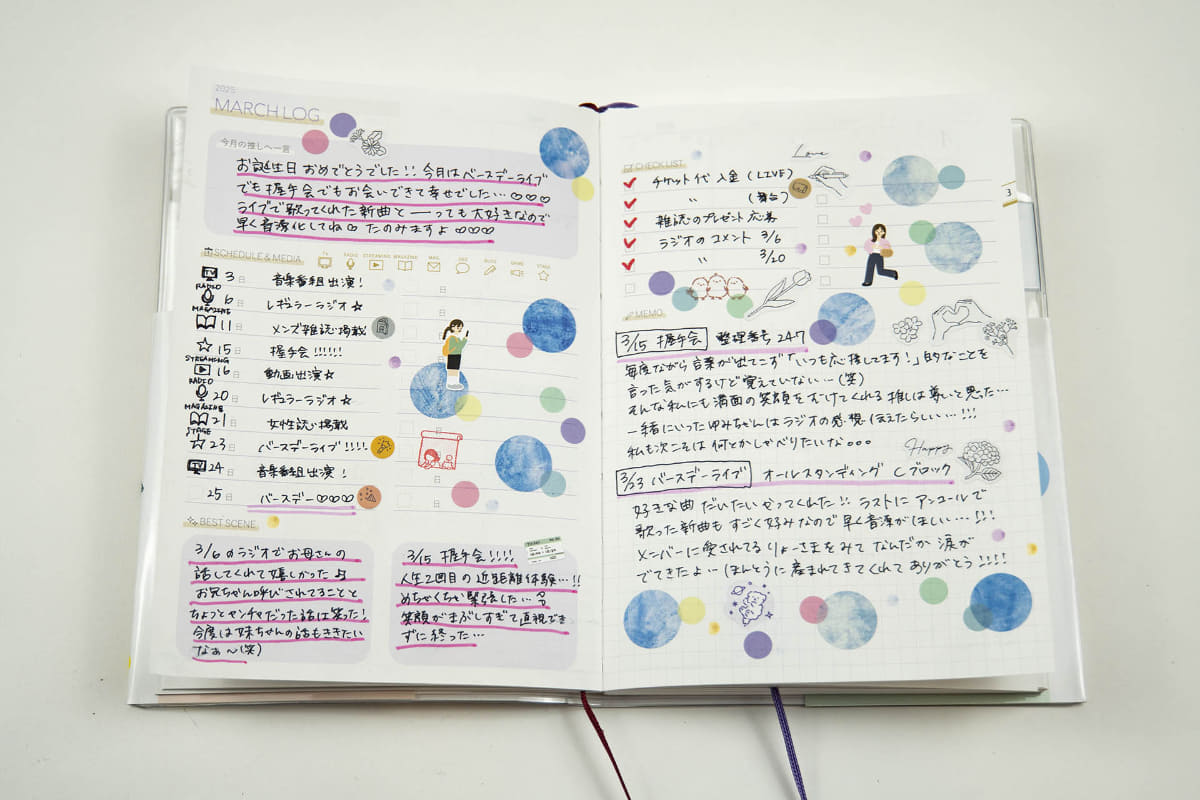 2025
MARCH LOG
今月の推しへ一言
お誕生日おめでとうでした!! 今月はバースデーライブ
でも握手会でもお会いできて幸せでした…♡♡♡
ライブで歌ってくれた新曲と──っても大好きなので
早く音源化してね♡ たのみますよ♡♡♡
SCHEDULE & MEDIA
TV RADIO STREAMING MAGAZINE MAIL SNS BLOG GAME STAGE
TV 3日 音楽番組出演!
RADIO 6日 レギュラーラジオ☆
MAGAZINE 11日 メンズ雑誌掲載
☆ 15日 握手会!!!!!!
STREAMING 16日 動画出演☆
RADIO 20日 レギュラーラジオ☆
MAGAZINE 21日 女性誌掲載
STAGE 23日 バースデーライブ!!!!
TV 24日 音楽番組出演!
25日 バースデー♡♡♡
日
日
日
日
日
BEST SCENE
3/6のラジオでお母さんの
話してくれて嬉しかったよ
お兄ちゃん呼びされてることと
ちょっとヤンチャだった話は笑った!
今度は妹ちゃんの話もききたい
なぁ〜(笑)
3/15 握手会!!!!
人生2回目の近距離体験…!!
めちゃくちゃ緊張した…
笑顔がまぶしすぎて直視でき
ずに終った…
Love
CHECK LIST
チケット代入金(LIVE)
〃 (舞台)
雑誌のプレゼント応募
ラジオのコメント 3/6
〃 3/20
3
MEMO
3/15 握手会 整理番号 247
毎度ながら言葉が出てこず「いつも応援してます!」的なことを
言った気がするけど覚えていない…(笑)
そんな私にも満面の笑顔をむけてくれる推しは尊いと思った…
一緒にいったゆみちゃんはラジオの感想伝えたらしい…!!!
私も次こそは何とかしゃべりたいな。。。
Happy
3/23 バースデーライブ オールスタンディング Cブロック
好きな曲だいたいやってくれた!! ラストにアンコールで
歌った新曲もすごく好みなので早く音源がほしい…!!!
メンバーに愛されてるりょーさまをみてなんだか涙が
でてきたよ…(ほんとうに)産まれてきてくれてありがとう!!!!